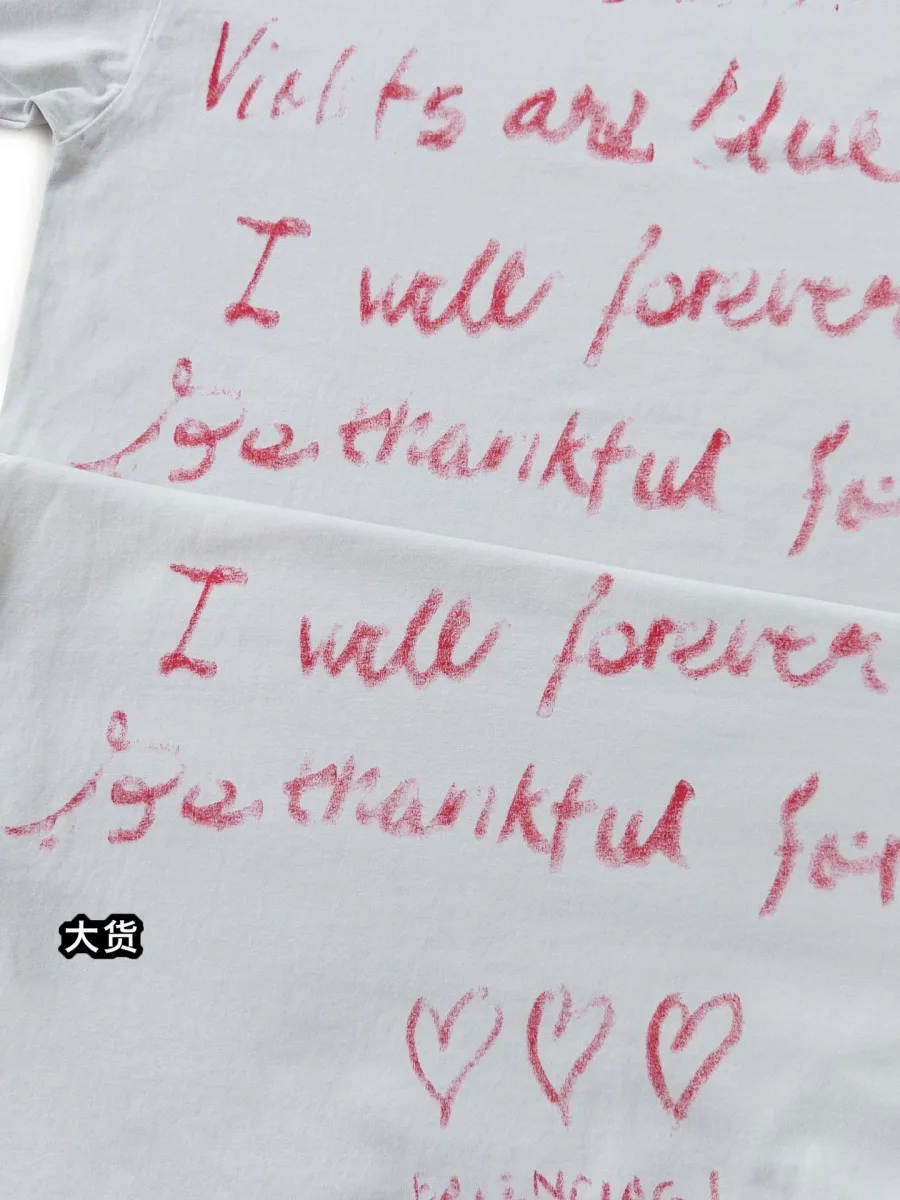 Violets are blue
I will forever
be thankful for
I will forever
be thankful for
大货